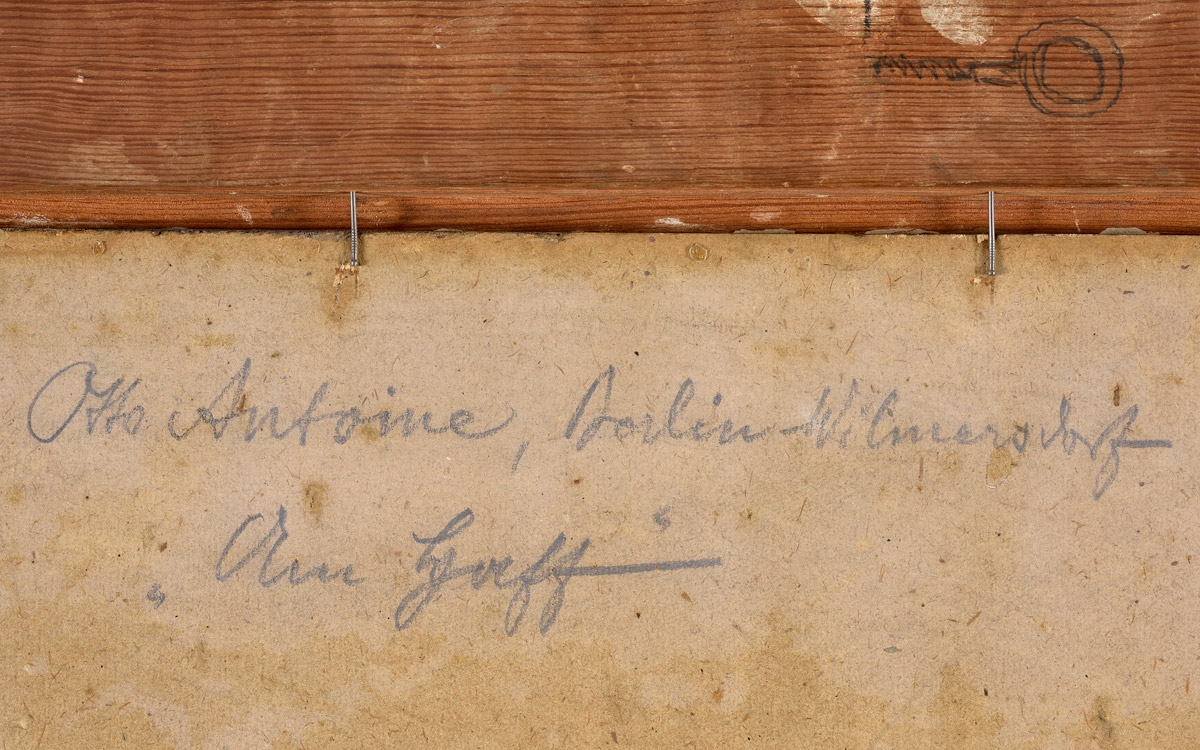 Otto Antoine, Berlin-Wilmersdorf
„Am Haff“